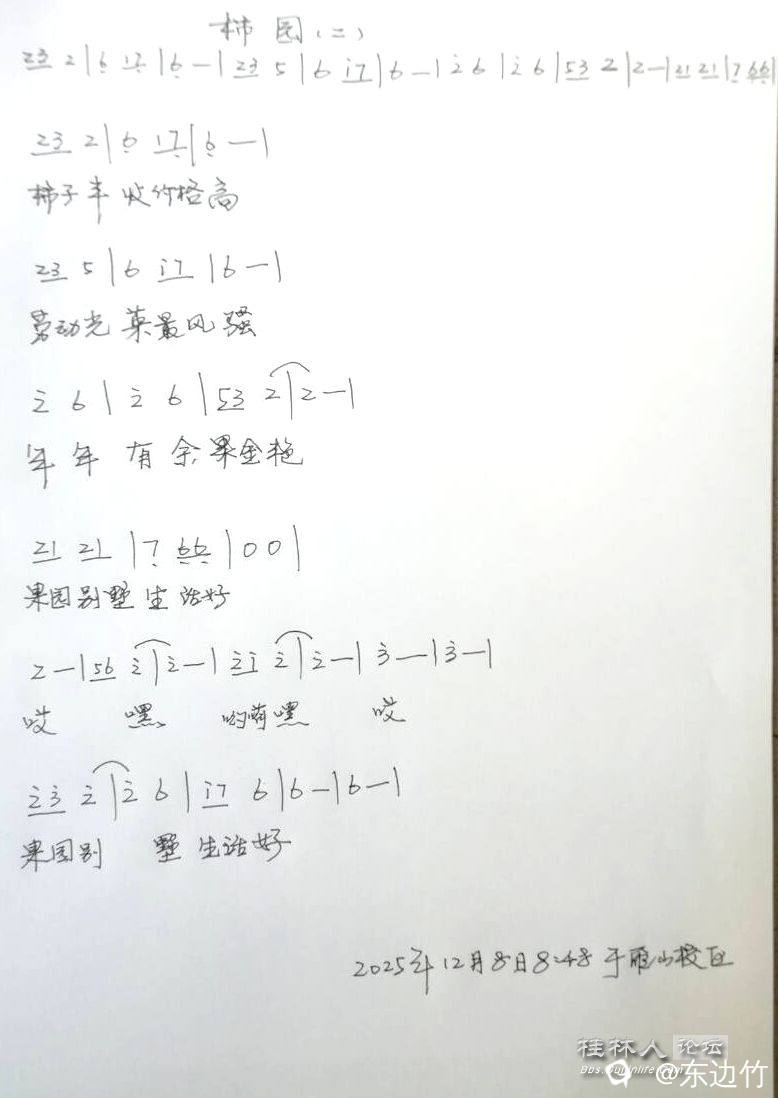 柿园(二)
23 2 | 6 17 | 6 — | 23 5 | 6 i7 | 6 — | 2 6 | 2 6 | 53 2 | 2 — | 21 21 | 7 66 |
23 2 | 6 17 | 6 — |
柿子丰收价格高
23 5 | 6 i7 | 6 — |
劳动光荣最风骚
2 6 | 2 6 | 53 2 | 2 — |
年年有余果金艳
21 21 | 7 66 | 0 0 |
果园别墅生活好
2 — | 56 2 | 2 — | 2i 2 | 2 — | 3 — | 3 — |
哎 嘿 哟荷嘿 哎
23 2 | 2 6 | i7 6 | 6 — | 6 — |
果园别 墅生活好
2025年12月8日8:48于雁山校区
桂林人论坛
Bbs.Guilinlife.Com
@东边竹